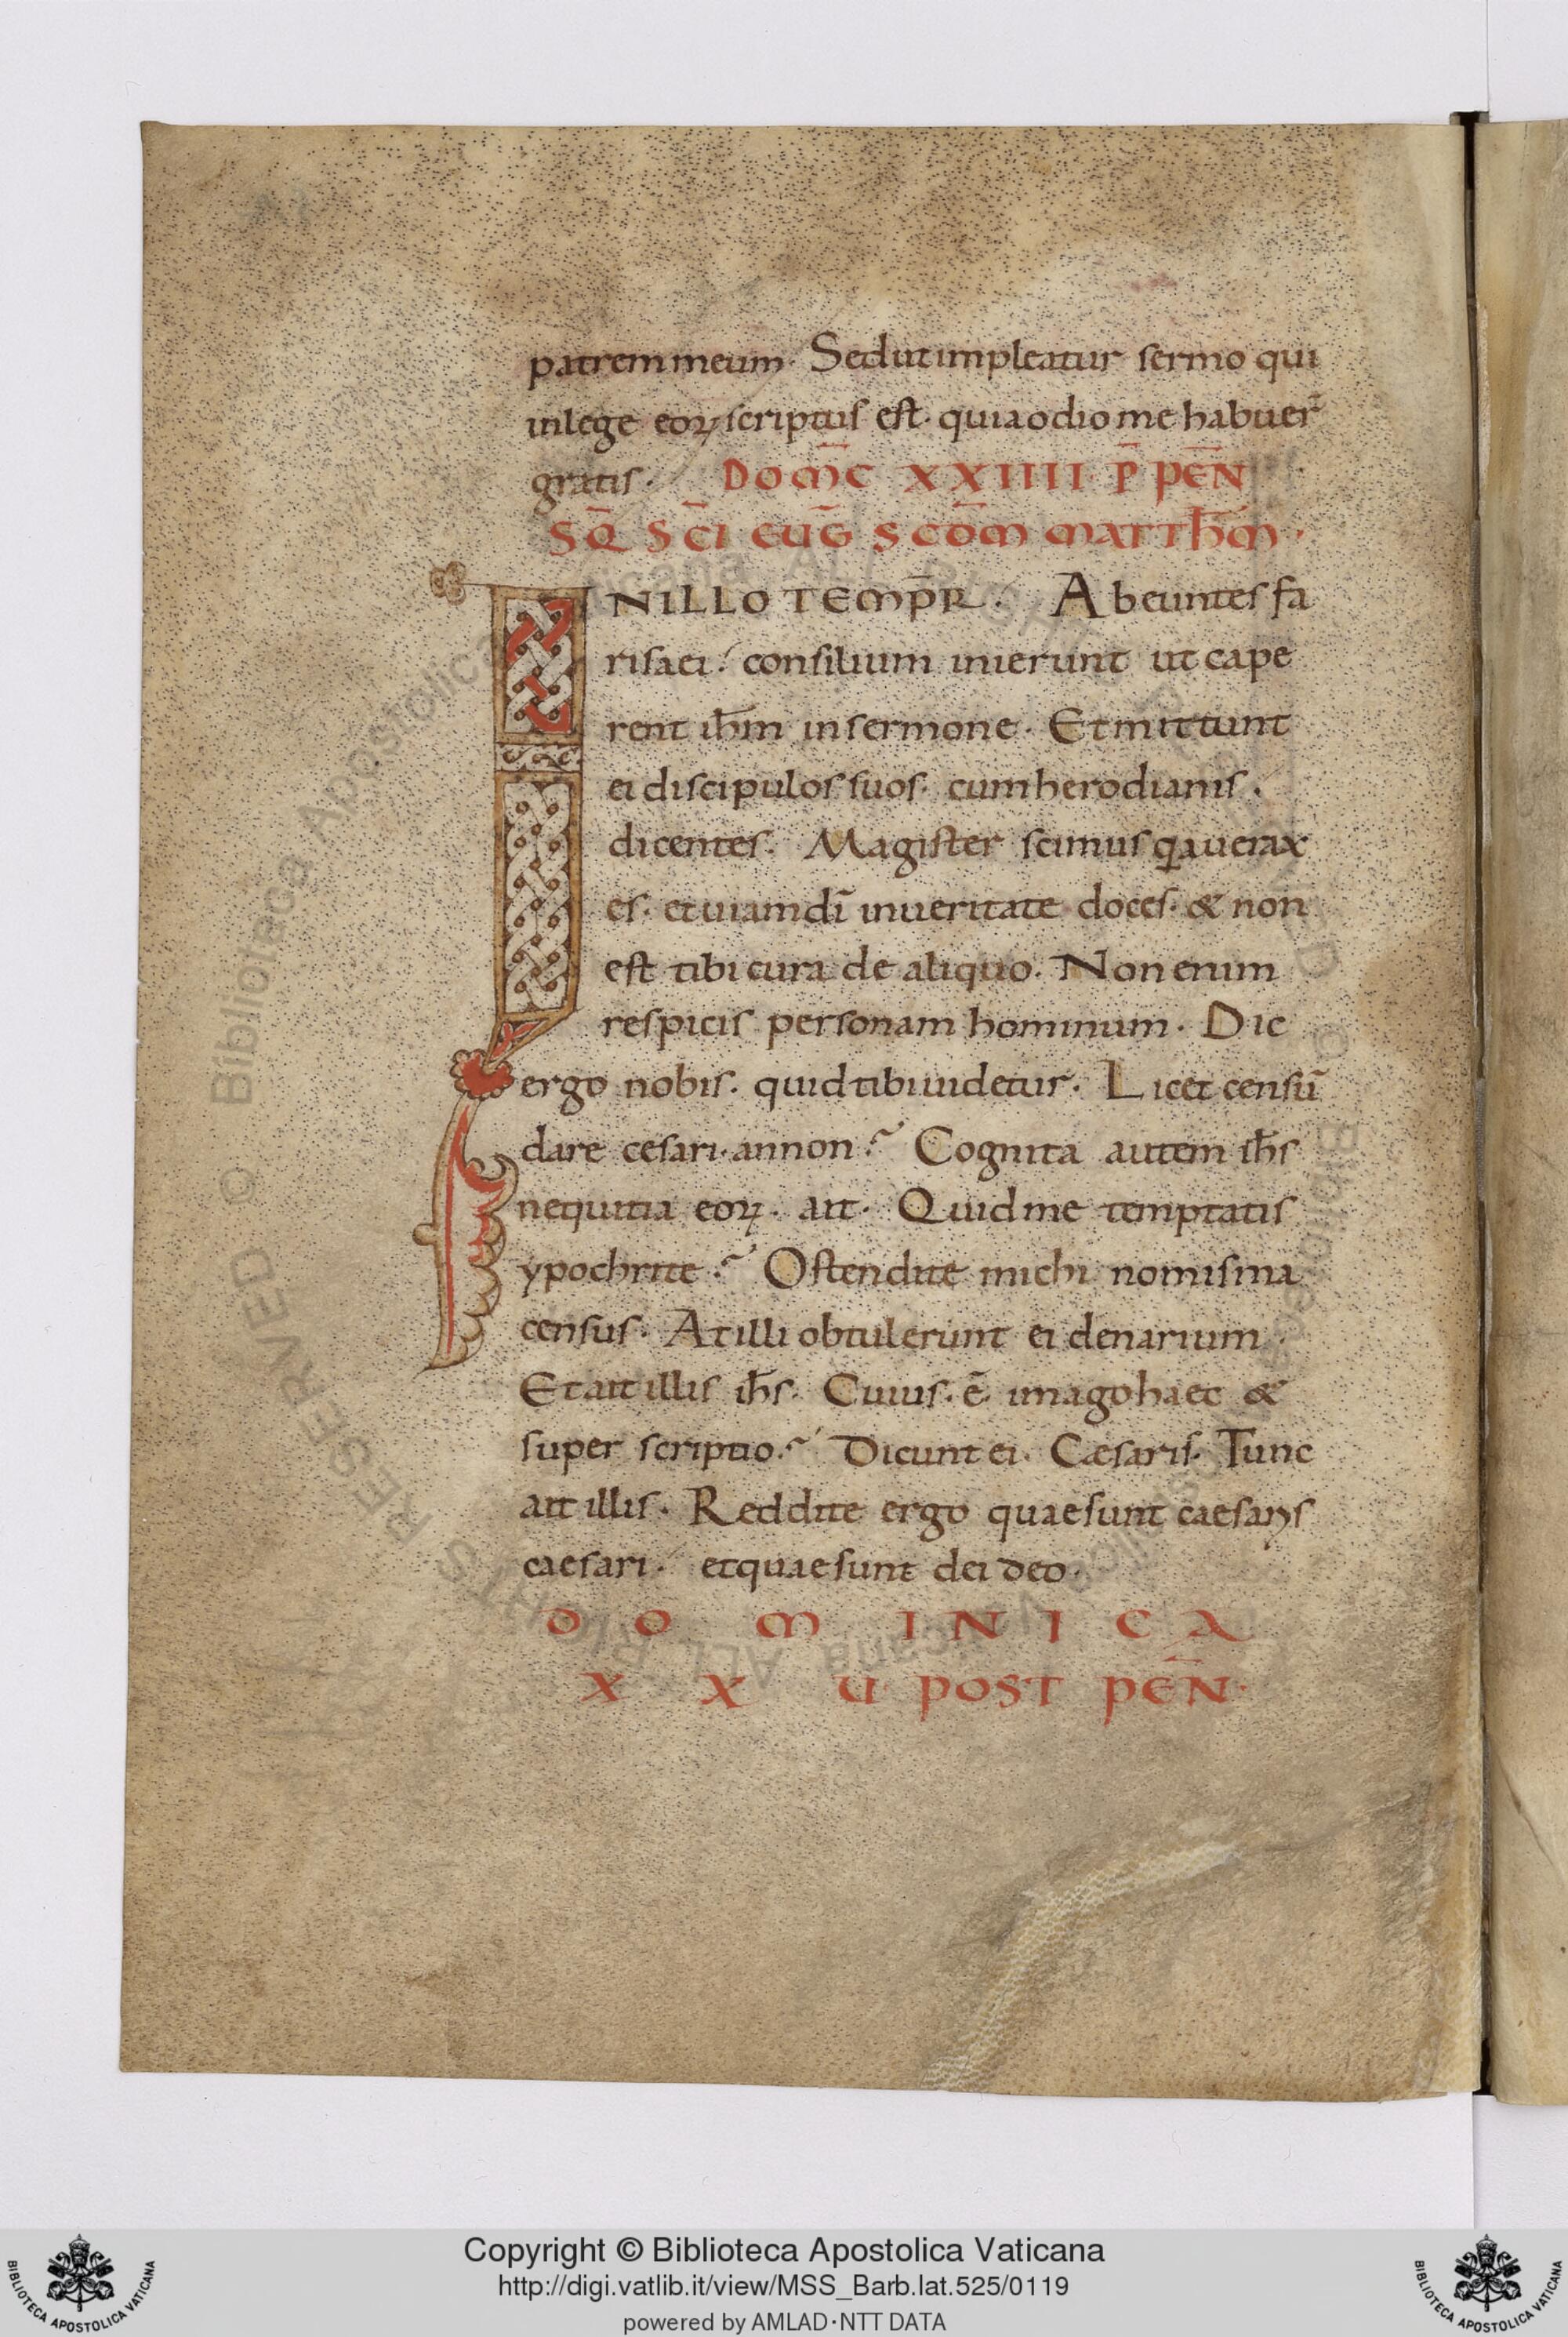 patrem meum. Sed ut impleatur sermo qui
in lege eoꝝ scriptus est. quia odio me habuer̄
gratis. DOM̄C XXIIII P̄ PEN̄
SQ̄ SC̄I EUḠ SCD̄M MATTHM̄.
INILLO TEMPR̄. Abeuntes fa
risaei. consilium inierunt ut cape
rent ih̄m in sermone. Et mittunt
ei discipulos suos. cum herodianis.
dicentes. Magister scimus qa uerax
es. et uiam dī in ueritate doces. & non
est tibi cura de aliquo. Non enim
respicis personam hominum. Dic
ergo nobis. quid tibi uidetur. Licet censū
dare cesari. an non? Cognita autem ih̄s
nequitia eoꝝ. ait. Quid me temptatis
ypochrite? Ostendite michi nomisma
census. At illi obtulerunt ei denarium.
Et ait illis ih̄s. Cuius. ē. imago haec &
super scriptio? Dicunt ei. Cæsaris. Tunc
ait illis. Reddite ergo quae sunt caesaris
caesari. et quae sunt dei deo.
DOMINICA
XXU POST PEN̄.
Copyright © Biblioteca Apostolica Vaticana
http://digi.vatlib.it/view/MSS_Barb.lat.525/0119
powered by AMLAD·NTT DATA
BIBLIOTECA APOSTOLICA VATICANA
BIBLIOTECA APOSTOLICA VATICANA